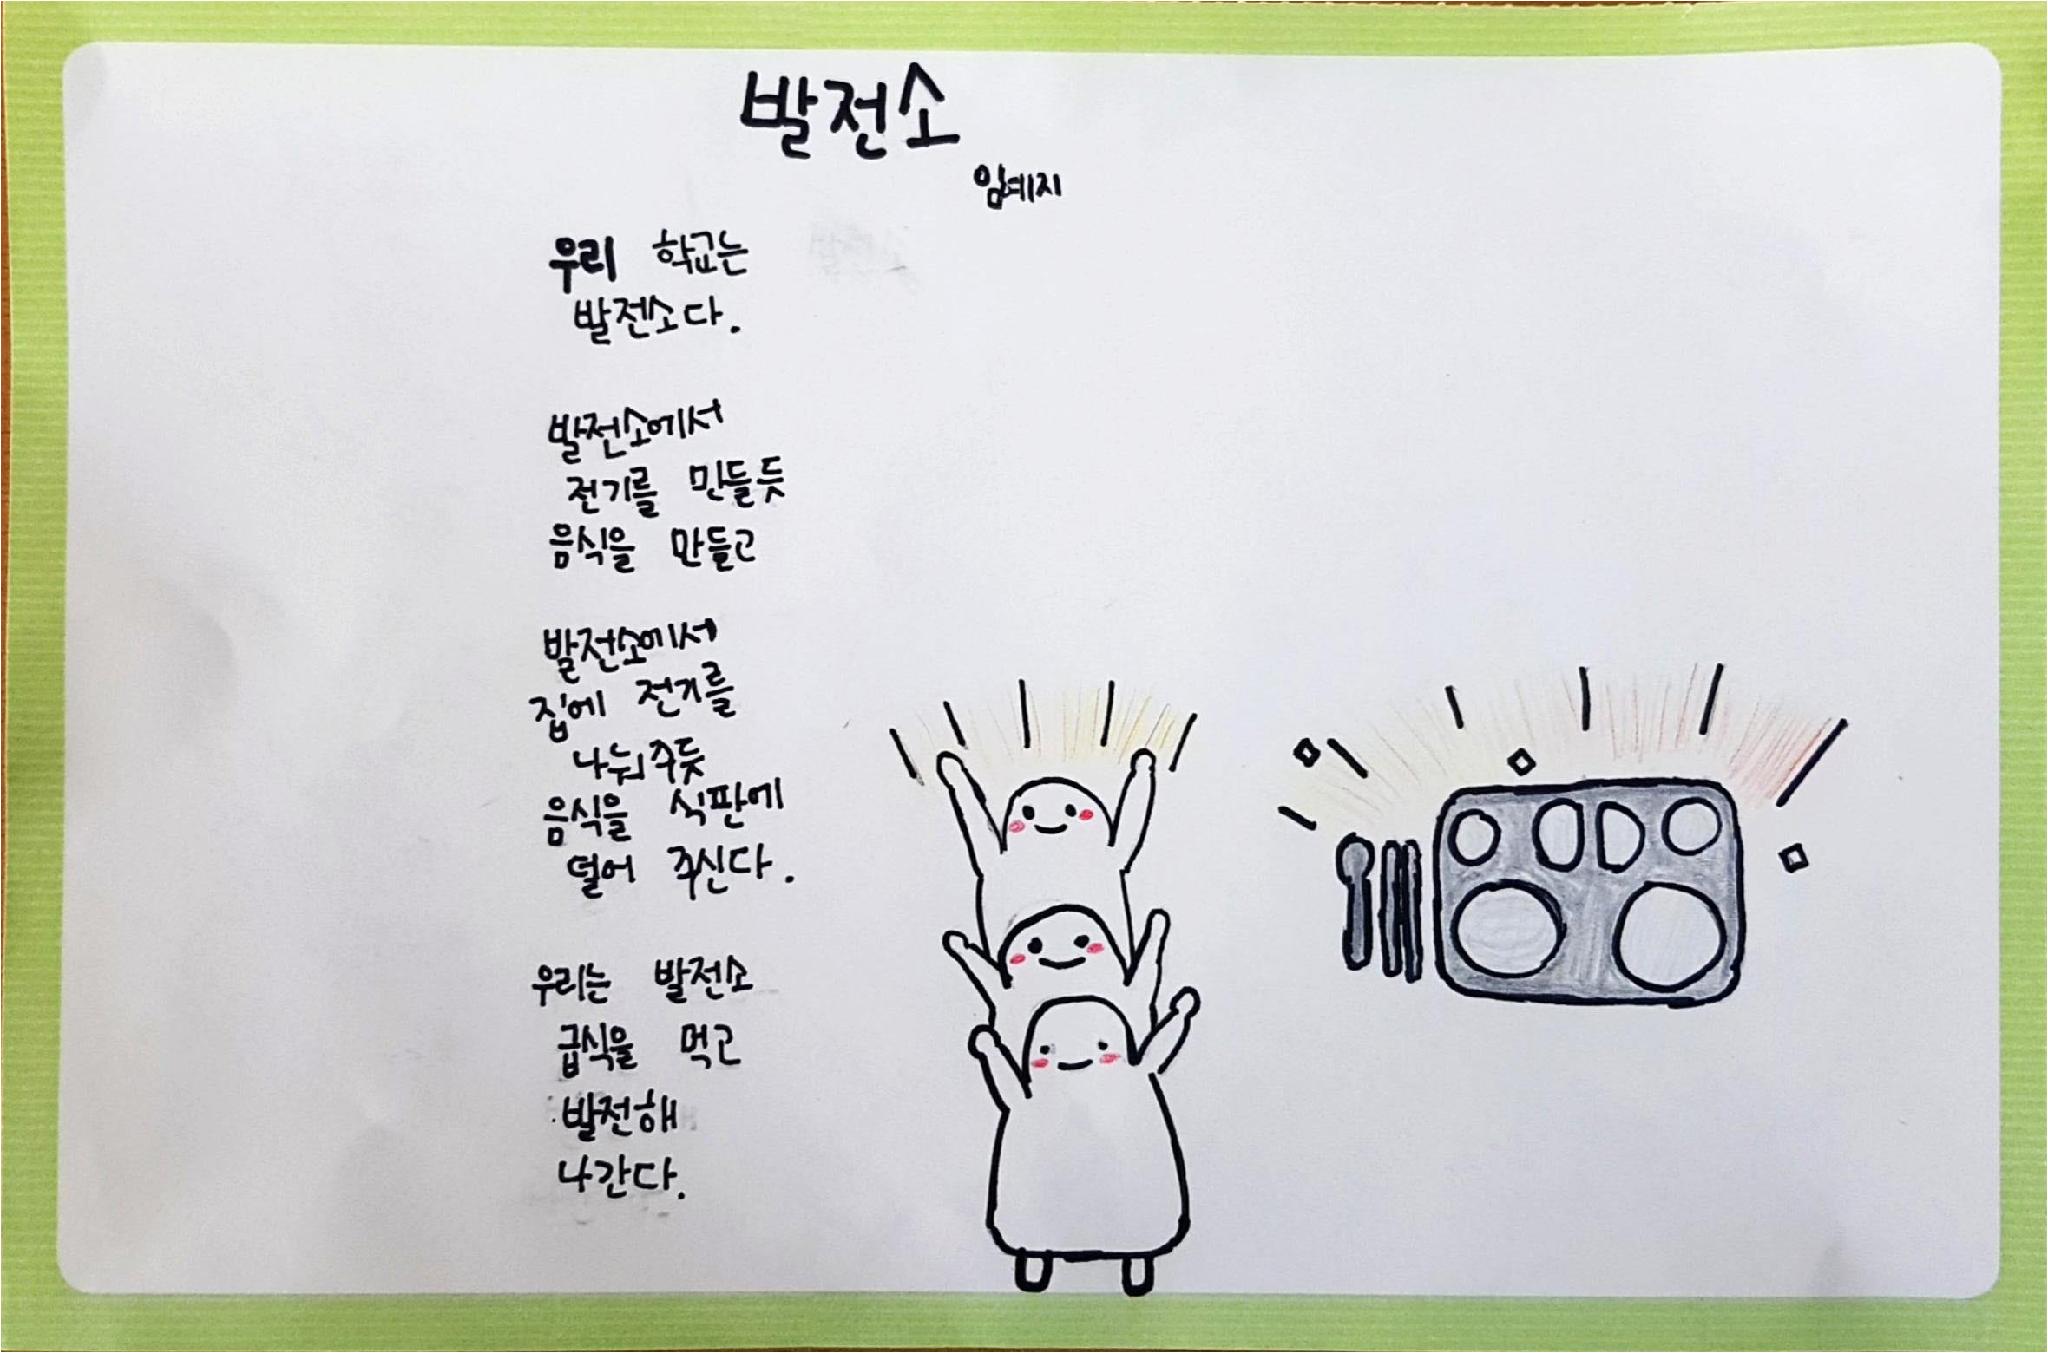 발전소
임예지
우리 학교는
발전소다.
발전소에서
전기를 만들듯
음식을 만들고
발전소에서
집에 전기를
나눠주듯
음식을 식판에
덜어 주신다.
우리는 발전소
급식을 먹고
발전해
나간다.